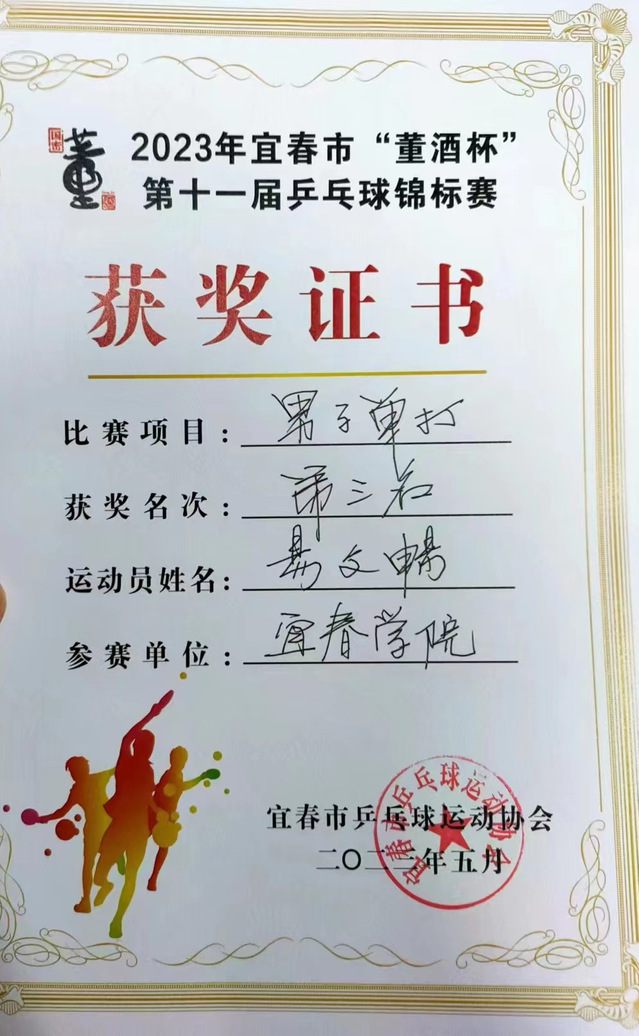 董
2023年宜春市“董酒杯”
第十一届乒乓球锦标赛
获奖证书
比赛项目：男子单打
获奖名次：第三名
运动员姓名：易文暢
参赛单位：宜春学院
宜春市乒乓球运动协会
二〇二三年五月
宜春市乒乓球运动协会